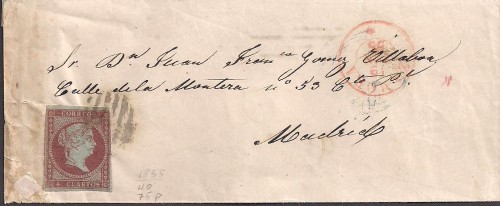 Sr. Dn Juan Francco Gomez Villaboa
Calle de la Montera no 53 Cto Pl.
Madrid
CORREOS
4 CUARTOS
1855
40
75P